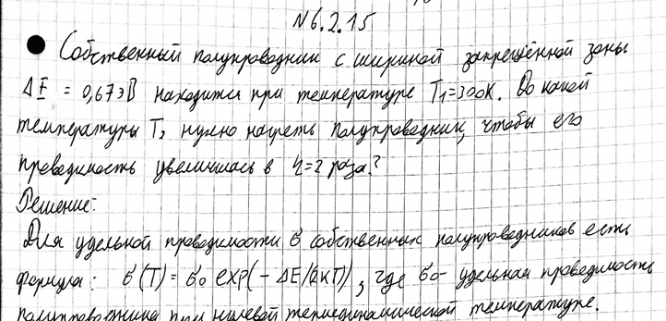 №6.2.15
Собственный полупроводник с шириной запрещённой зоны
ΔE = 0,67 эВ находится при температуре T₁=300К. До какой
температуры T₂ нужно нагреть полупроводник, чтобы его
преведимость увеличилась в η=2 раза?
Решение:
Для удельной проводимости б собственных полупроводников есть
формула: б(T) = б₀ exp(- ΔE/2kT), где б₀- удельная проводимость
полупроводника при нулевой термодинамической температуре.